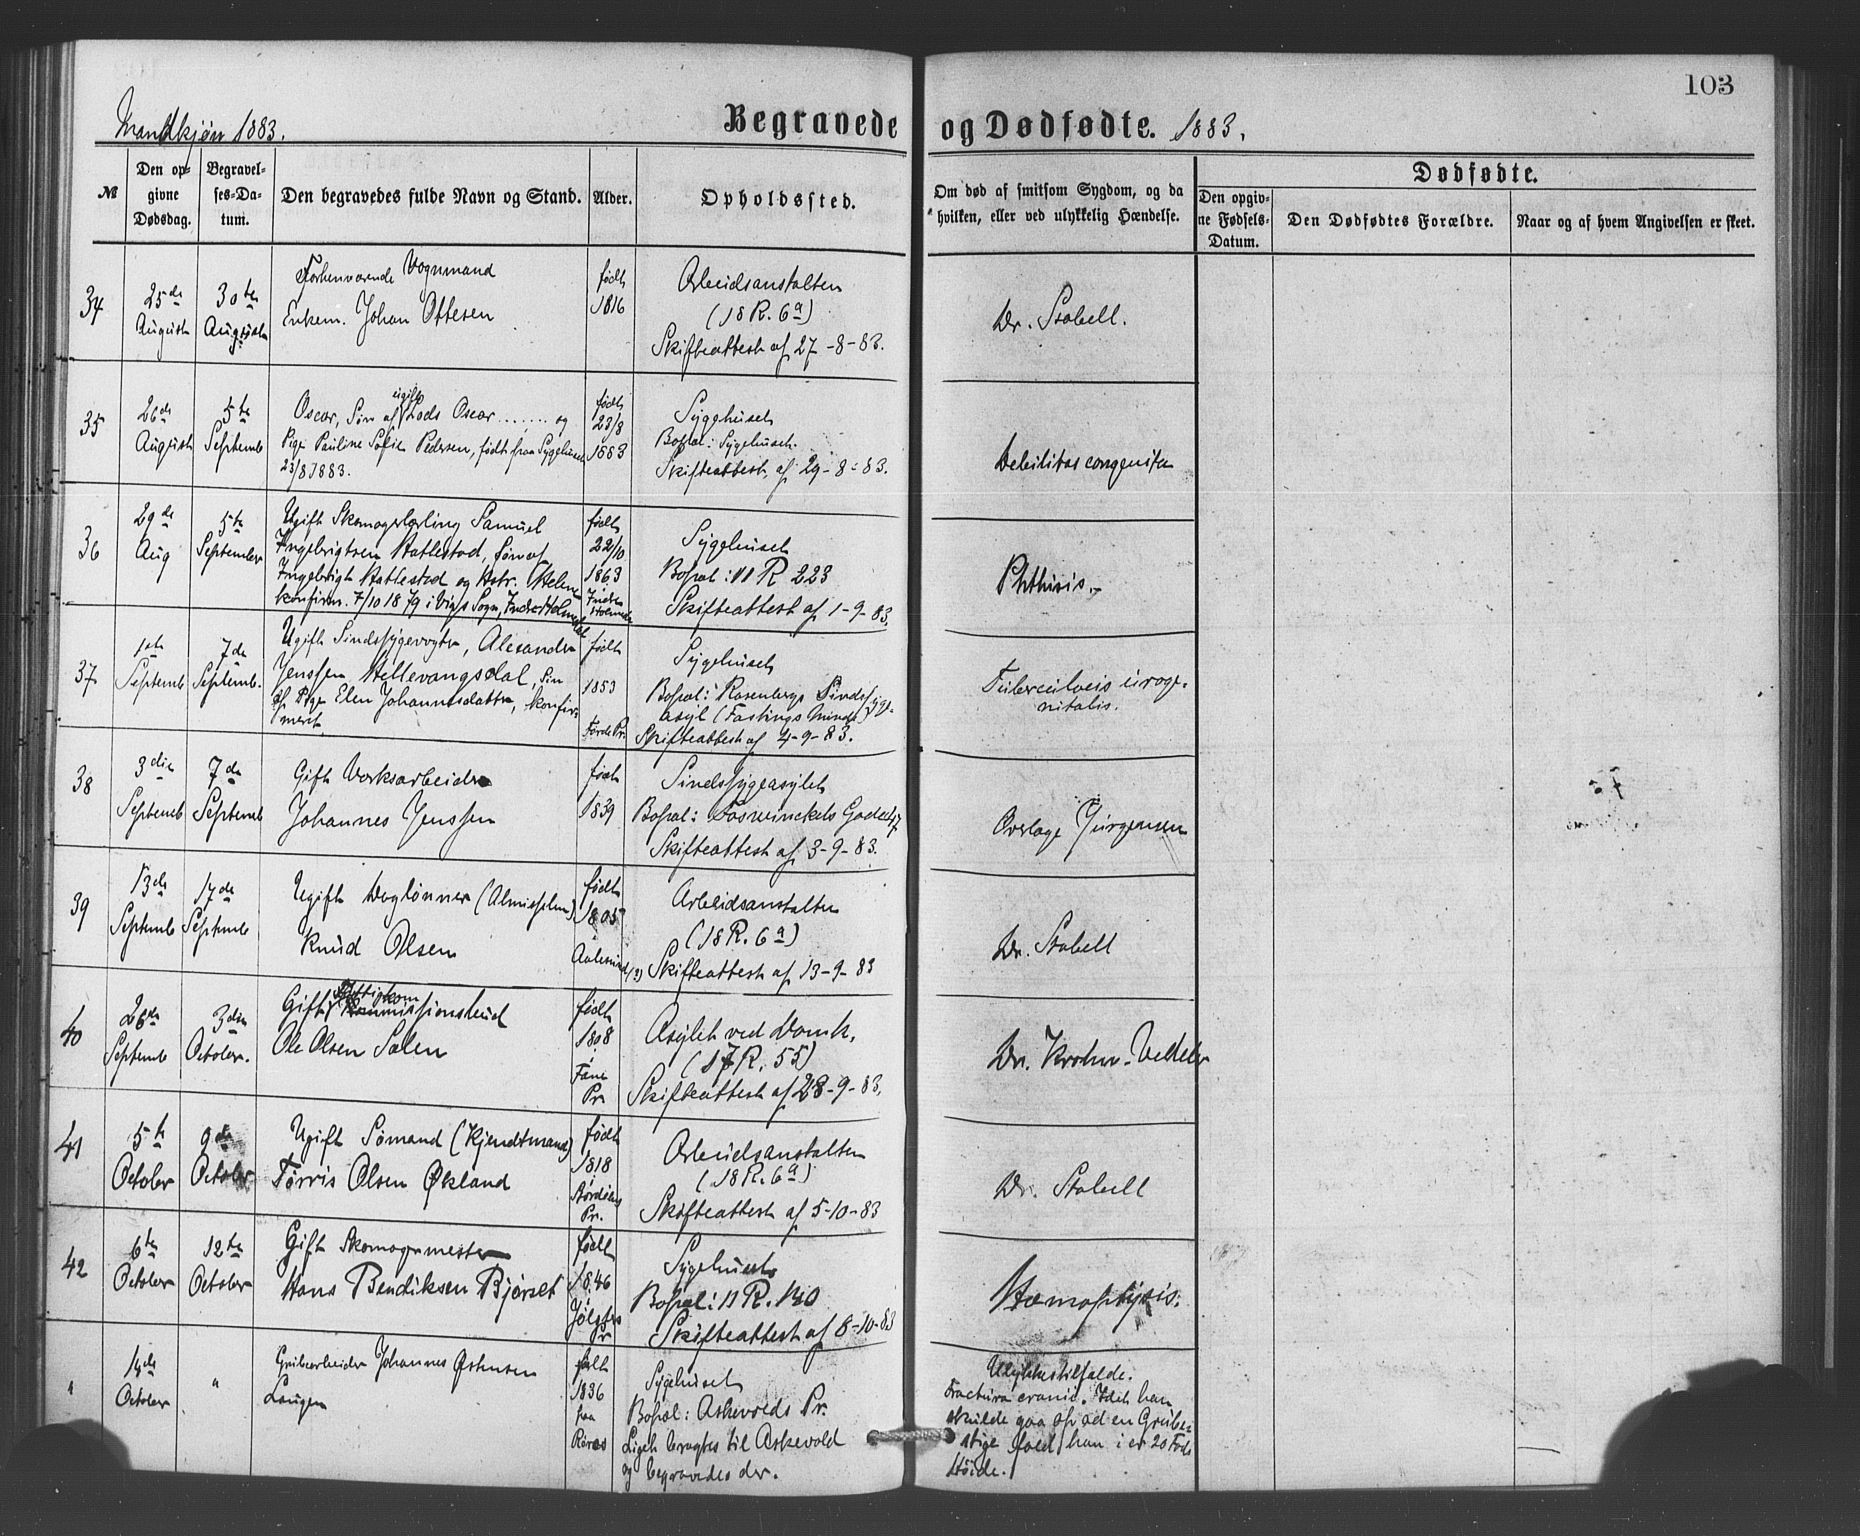 103
Mandkjøn 1883.
Begravede og Dødfødte. 1883.
№
Den op-
givne
Dødsdag.
Begravel-
ses-Da-
tum.
Den begravedes fulde Navn og Stand.
Alder.
Opholdssted.
Om død af smitsom Sygdom, og da
hvilken, eller ved ulykkelig Hændelse.
Dødfødte.
Den opgiv-
ne Fødsels-
Datum.
Den Dødfødtes Forældre.
Naar og af hvem Angivelsen er skeet.
34
25de
August
30te
August
Forhenværende Vognmand
Enkem. Johan Ottesen
født
1816
Arbeidsanstalten
(18 R. 6a)
Skifteattest af 27-8-83.
Dr. Stabell.
35
26de
August
5te
Septemb
Oscar, Søn af ugift Lods Oscar ....... og
Pige Pauline Sofie Pedersen, født paa Sygehuset
23/8 1883.
født
23/8
1883
Sygehuset
Bopæl: Sygehuset.
Skifteattest af 29-8-83.
Debilitas congenita
36
29de
Aug
5te
September
Ugift Skomagerlærling Samuel
Ingebrigtsen Hatlestad, Søn af
Ingebrigt Hatlestad og Hstr. Helene
konfirm. 7/10 1879 i Vigs Sogn, Indre Holmedal
født
22/10
1863
Indre
Holmedal
Sygehuset
Bopæl: 11 R 223
Skifteattest af 1-9-83.
Phthisis.
37
1ste
Septemb
7de
Septemb.
Ugift Sindssygevogter, Alexander
Jenssen Hellevangsdal, Søn
af Pige Elen Johannesdatter, konfir-
meret
født
1853
Førde Pr.
Sygehuset
Bopæl: Rosenbergs Sindssyge-
asyl (Fastings Minde)
Skifteattest af 4-9-83.
Tuberculosis uroge-
nitalis.
38
3die
Septemb
7de
Septemb
Gift Verksarbeider
Johannes Jenssen
født
1839
Sindssygeasylet
Bopæl: Foswinckels Gade 37
Skifteattest af 3-9-83.
Overlæge Jürgensen
39
13de
Septemb
17de
Septemb
Ugift Daglønner (Almisselem)
Knud Olsen
født
1805
Aalesund (?)
Arbeidsanstalten
(18 R. 6a)
Skifteattest af 13-9-83
Dr. Stabell
40
26de
Septemb
3die
October.
Gift Fattigkommissionsbud
Ole Olsen Salen
født
1808
Fane
Pr.
Asylet ved Domk.
(17 R. 55)
Skifteattest af 28-9-83.
Dr. Krohn-Vedeler
41
5te
October
9de
October
Ugift Sømand (Kjendtmand)
Tørris Olsen Økland
født
1818
Størdøens
Pr.
Arbeidsanstalten
(18 R. 6a)
Skifteattest af 5-10-83
Dr. Stabell
42
6te
October
12te
October
Gift Skomagermester
Hans Bendiksen Bjørset
født
1846
Jølsters
Pr
Sygehuset
Bopæl: 11 R. 140
Skifteattest af 8-10-83
Hæmoptysis.
"
14de
October
"
Grubearbeider Johannes Østensen
Laugen
født
1836
paa
Røros
Sygehuset
Bopæl: Askevolds Pr.
Liget bragtes til Askevold
og begravedes der.
Ulykkestilfælde.
Fractura cranii. Idet han
skulde gaa op ad en Grube-
stige faldt han i er 20 Fods
Høide.